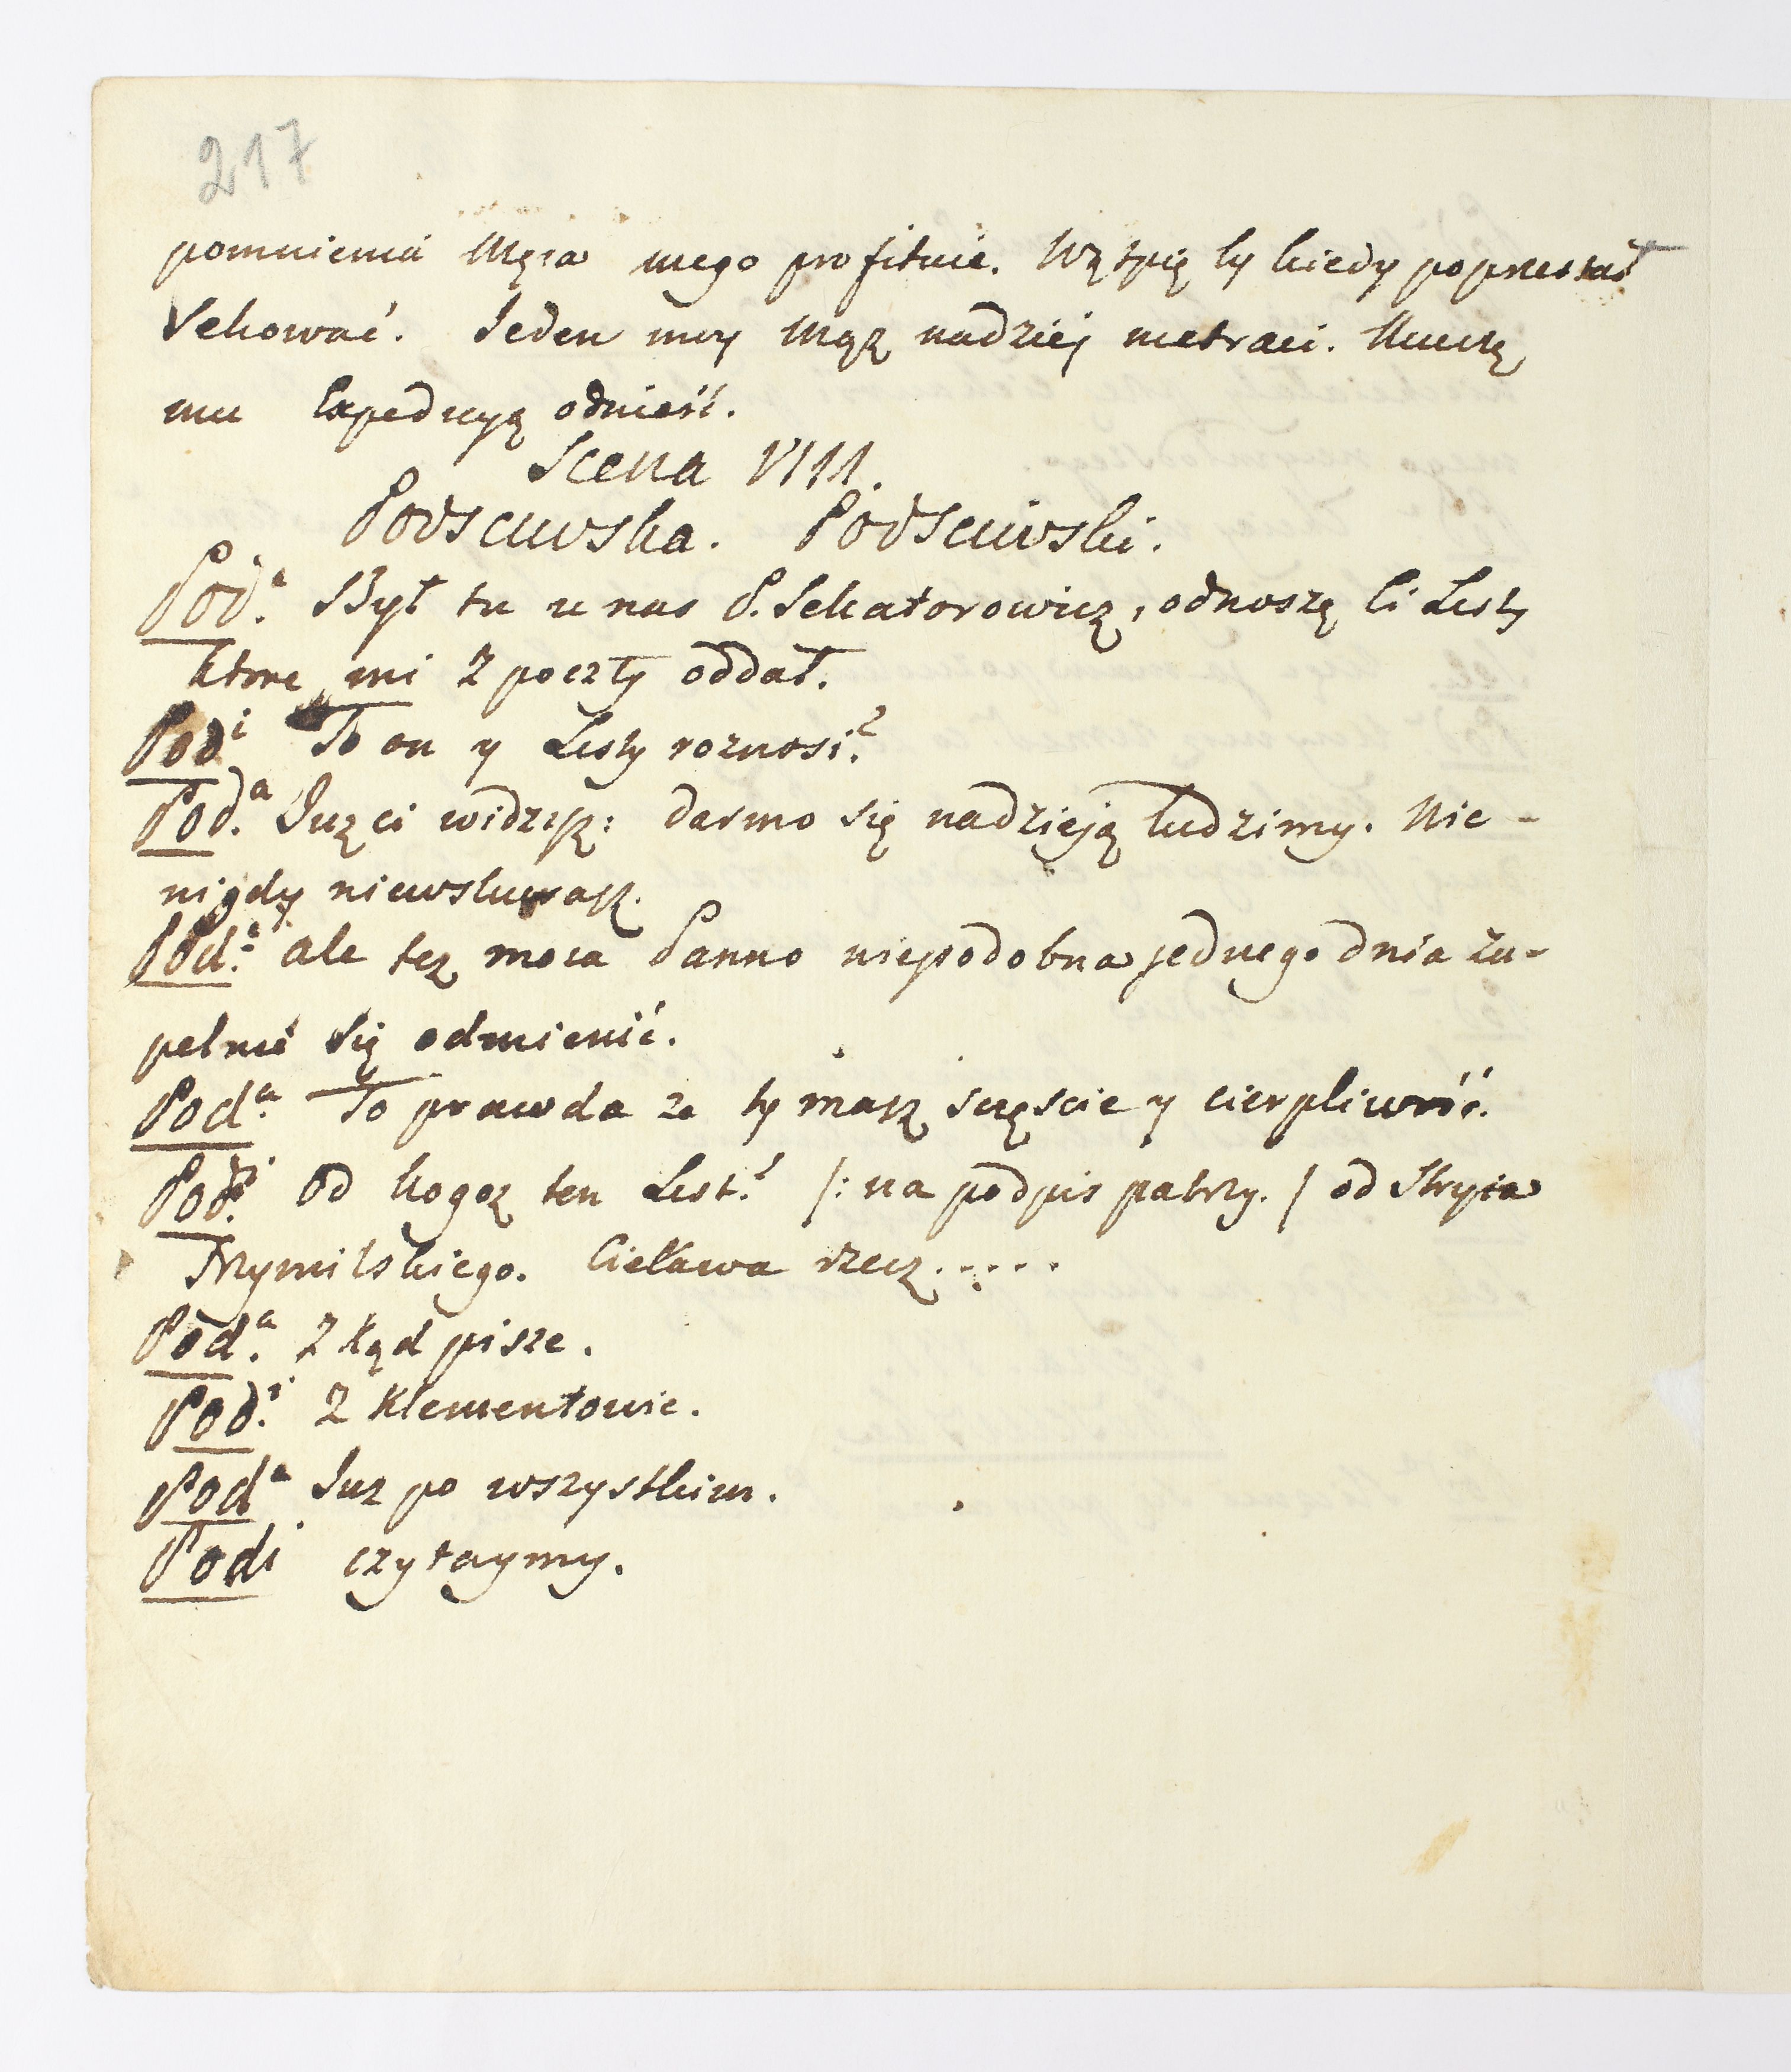 217
pomnienia Męża mego profituie. Wątpię by kiedy poprzestał
Sekować. Jeden moy Mąż nadziej nietraci. Muszę
mu Expedycyą odnieść.
Scena VIII.
Podsewska. Podsewski.
Pod.a Był tu u nas P. Sekatorowicz, odnoszę Ci Listy
ktore mi z poczty oddał.
Podi To on y Listy roznosi?
Pod.a Juz ci widzisz: darmo się nadzieją ludzimy. Nie-
nigdy niewskurasz.
Pod. ale tez moia Panno niepodobna jednego dnia zu-
pełnie się odmienić.
Pod.a To prawda ze ty masz szczęscie y cierpliwość.
Pod.i Od kogoz ten List? /: na podpis patrzy. / od Stryia
Trzymilskiego. Ciekawa rzecz.....
Pod.a Z kąd pisze.
Pod.i Z Klementowic.
Poda Juz po wszystkim.
Podi czytaymy.